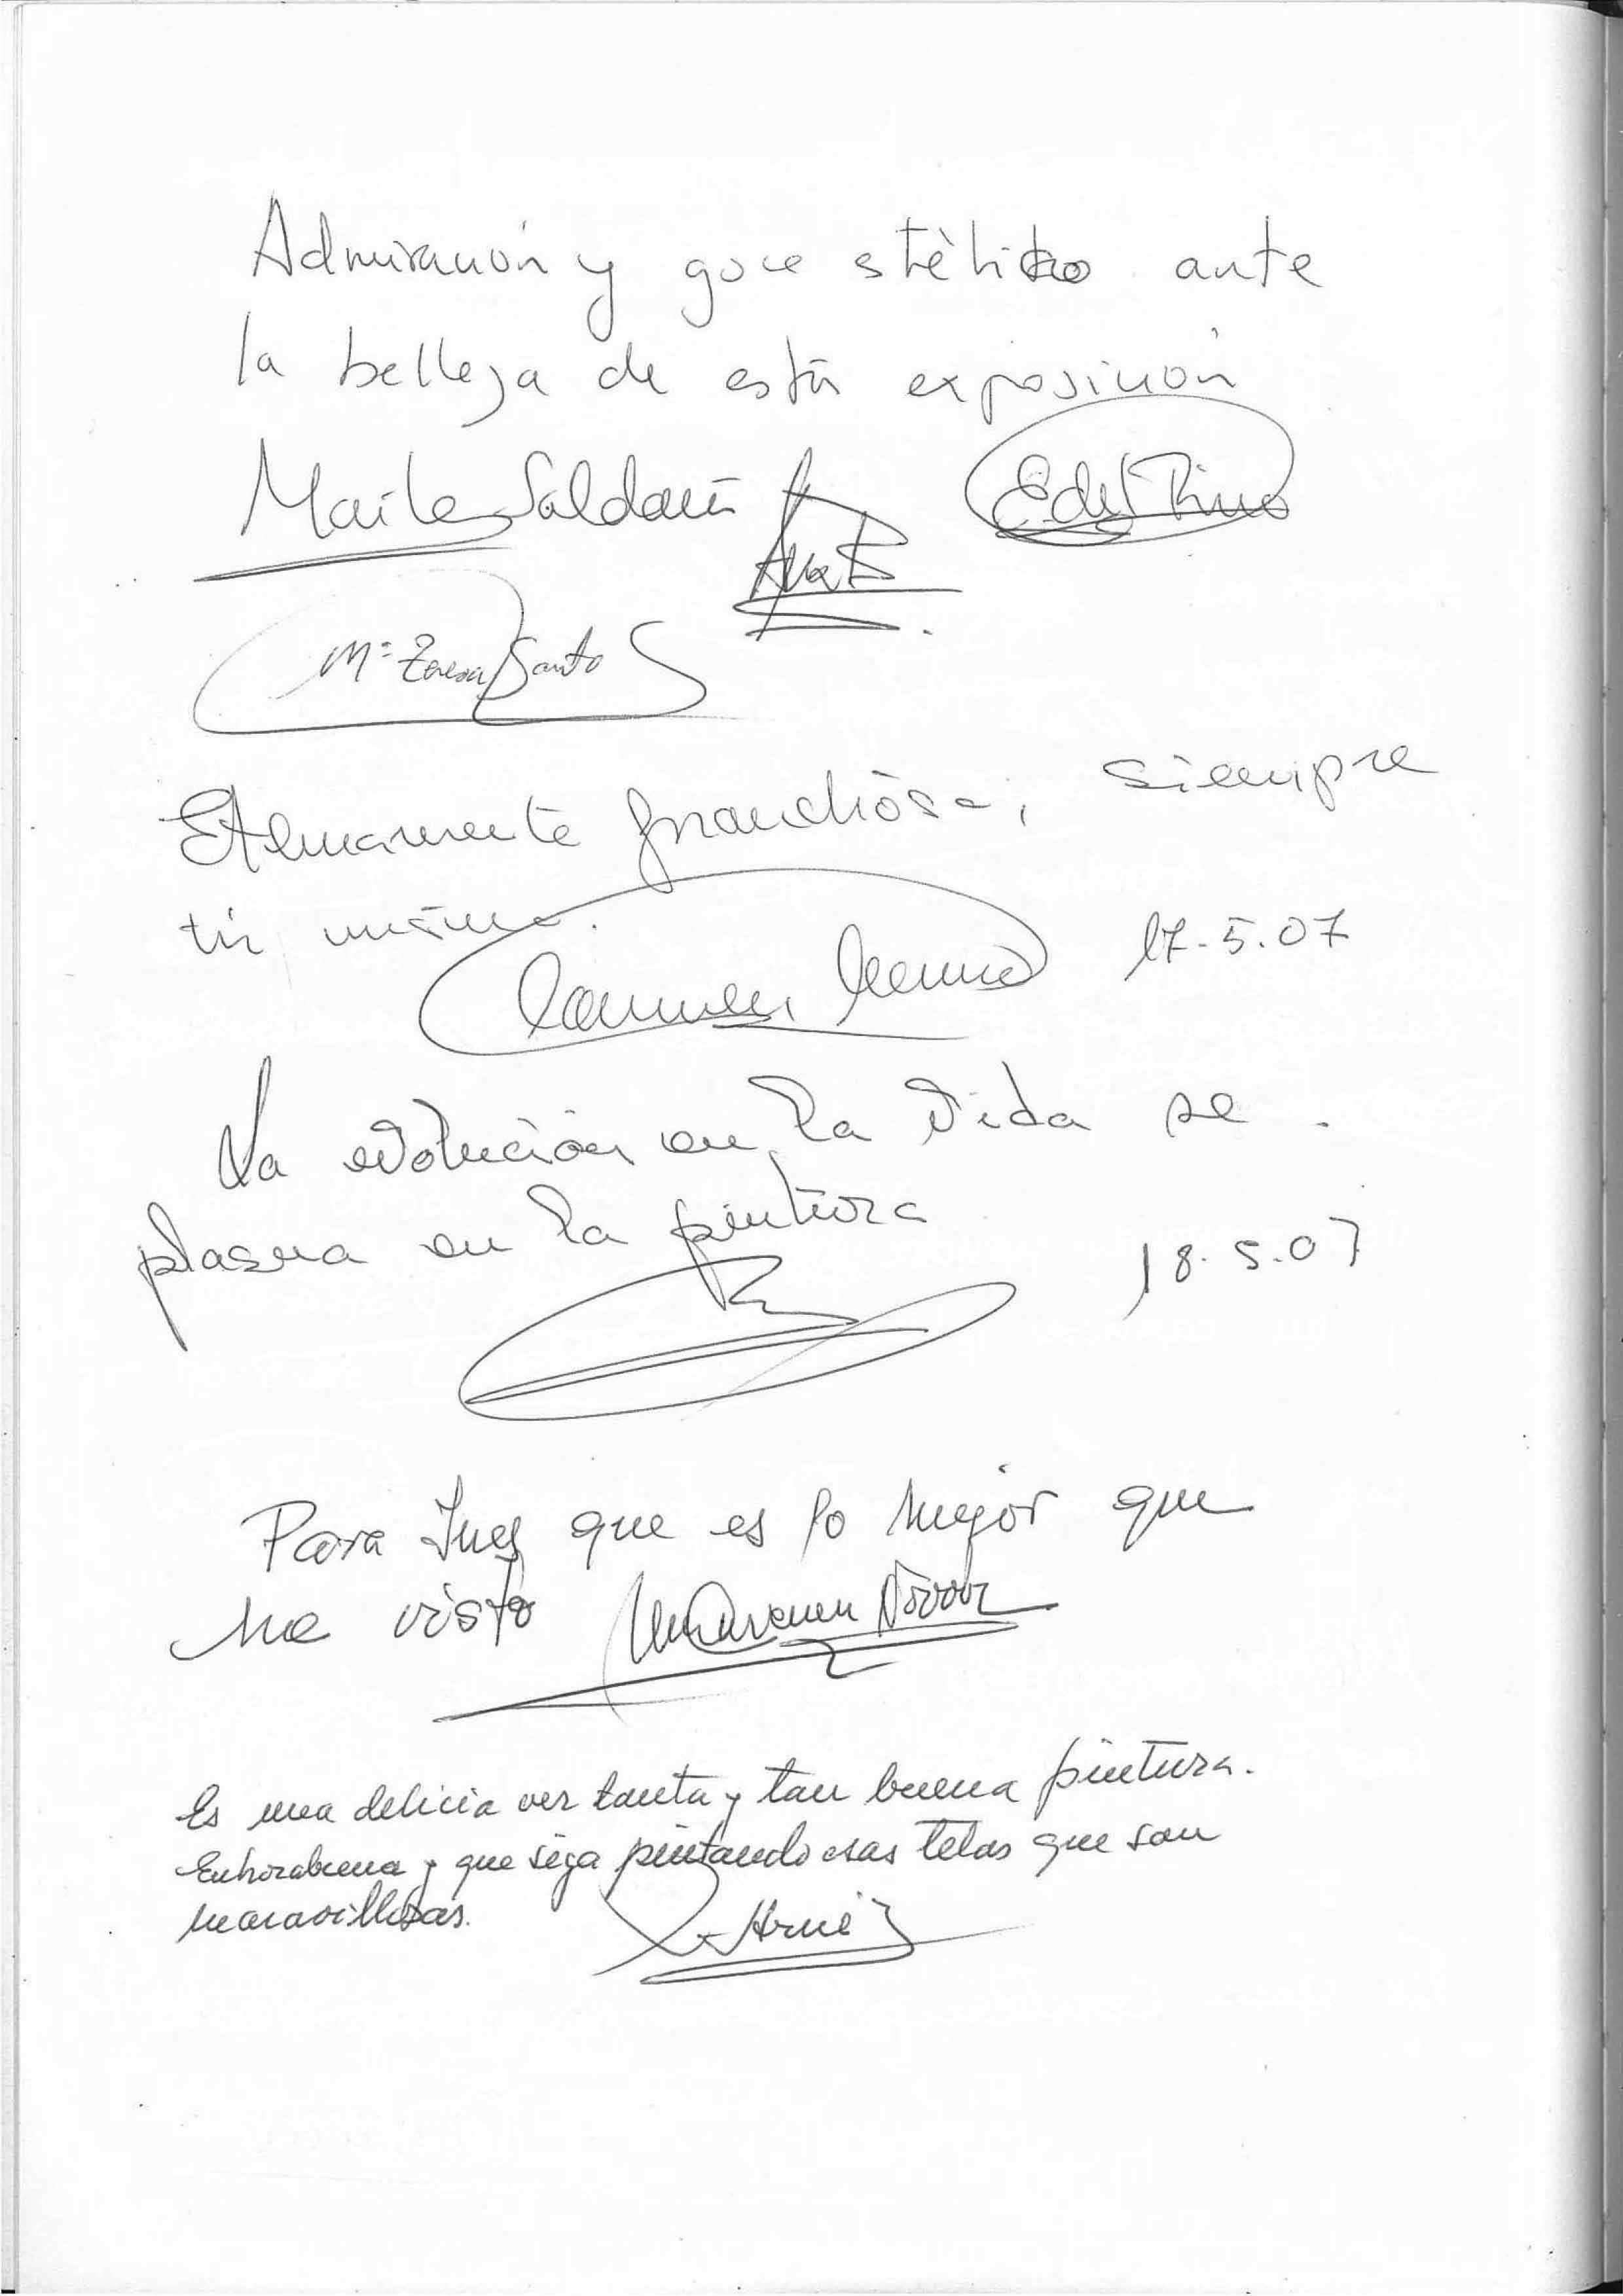 Admiración y goce stètico ante
la belleza de esta exposición
Maite Saldaña
E. del Pino
Mª Teresa Santos
grandiòsa, siempre
tú misma.
Carmen 17-5.07
La evolución en la vida se
plasma en la pintura
18-5.07
Para Ines que es lo mejor que
he visto
Es una delicia ver tanta y tan buena pintura.
Enhorabuena y que siga pintando esas telas que son
maravillosas.